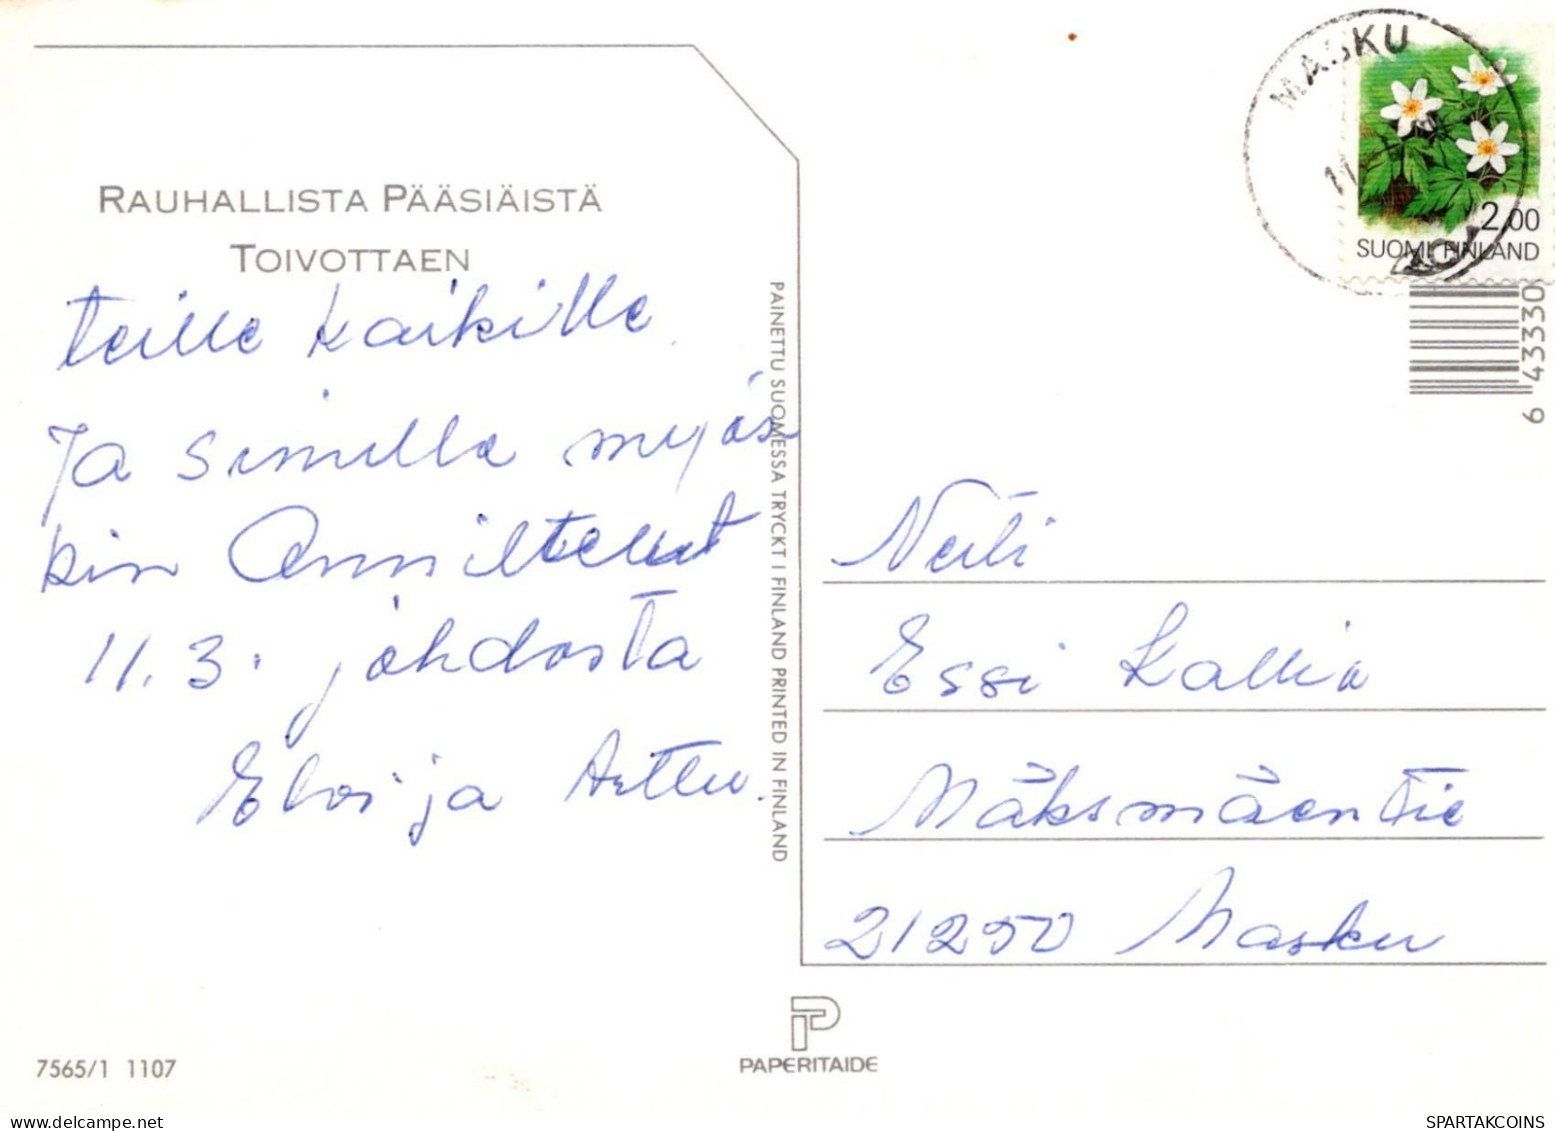 RAUHALLISTA PÄÄSIÄISTÄ
TOIVOTTAEN
teille kaikille
Ja sinulle myös
kin Onnittelut
11.3. johdosta
ja Arttu.
PAINETTU SUOMESSA TRYCKT I FINLAND PRINTED IN FINLAND
MASKU
11
2,00
SUOMI FINLAND
6 43330
Neiti
Essi Kallio
Mäksmäentie
21250 Masku
PAPERITAIDE
7565/1 1107
www.delcampe.net
SPARTAKCOINS